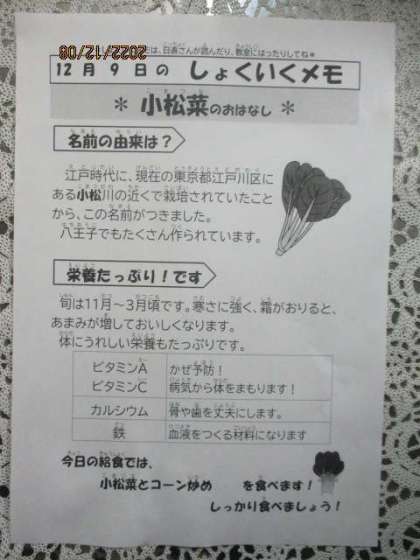 2022/12/08
は、日直さんが読んだり、教室にはったりしてね＊
12月 9日の しょくいくメモ
＊ 小松菜のおはなし ＊
名前の由来は？
江戸時代に、現在の東京都江戸川区に
ある小松川の近くで栽培されていたこと
から、この名前がつきました。
八王子でもたくさん作られています。
栄養たっぷり！です
旬は11月～3月頃です。寒さに強く、霜がおりると、
あまみが増しておいしくなります。
体にうれしい栄養もたっぷりです。
ビタミンA かぜ予防！
ビタミンC 病気から体をまもります！
カルシウム 骨や歯を丈夫にします。
鉄 血液をつくる材料になります
今日の給食では、
小松菜とコーン炒め を食べます！
しっかり食べましょう！